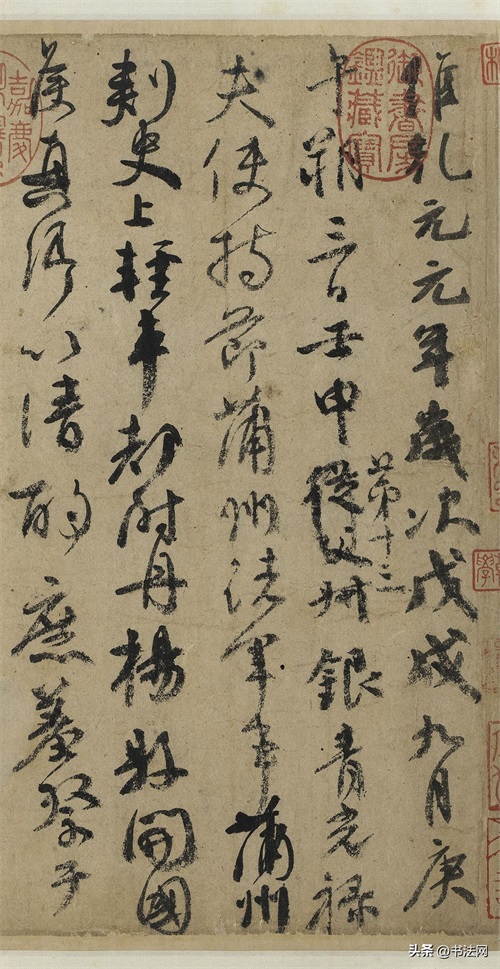 維乾元元年歲次戊戌九月庚
午朔三日壬申從父叔銀青光祿
第十三
夫使持節蒲州諸軍事蒲州
刺史上輕車都尉丹楊縣開國
侯真卿以清酌庶羞祭于
御書房
鑑藏寶
嘉慶
头条 @书法网